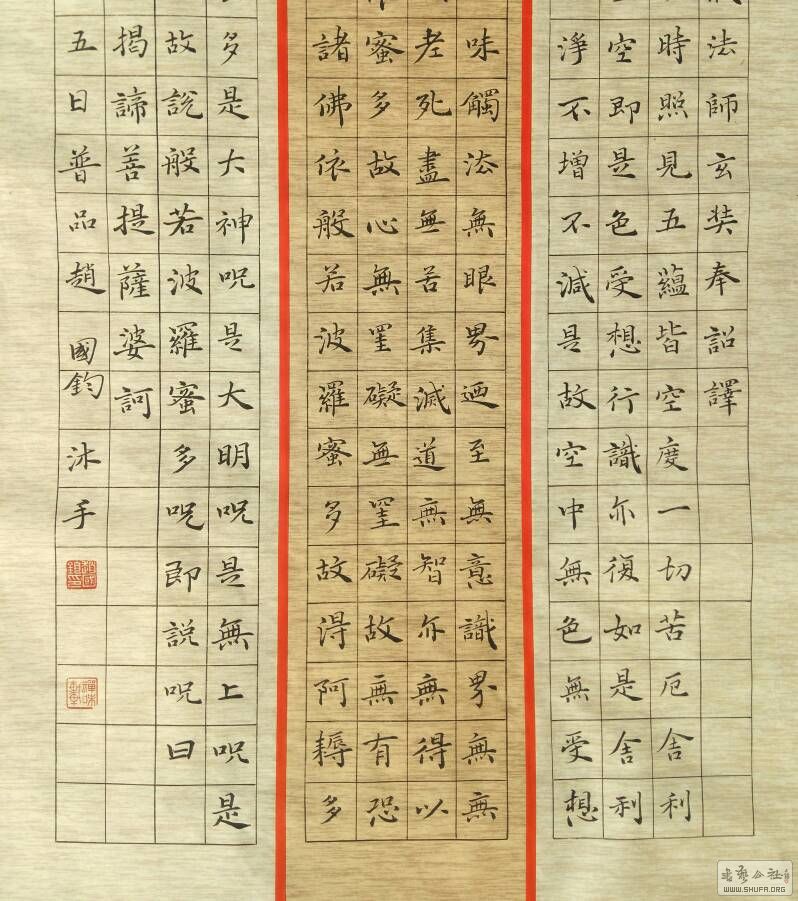 法師玄奘奉詔譯
時照見五蘊皆空度一切苦厄舍利
空即是色受想行識亦復如是舍利
淨不增不減是故空中無色無受想
味觸法無眼界迺至無意識界無無
老死盡無苦集滅道無智亦無得以
蜜多故心無罣礙無罣礙故無有恐
諸佛依般若波羅蜜多故得阿耨多
多是大神呪是大明呪是無上呪是
故說般若波羅蜜多呪即說呪曰
揭諦菩提薩婆訶
五日普品趙國鈞沐手
書藝公社
WWW.SHUFA.ORG